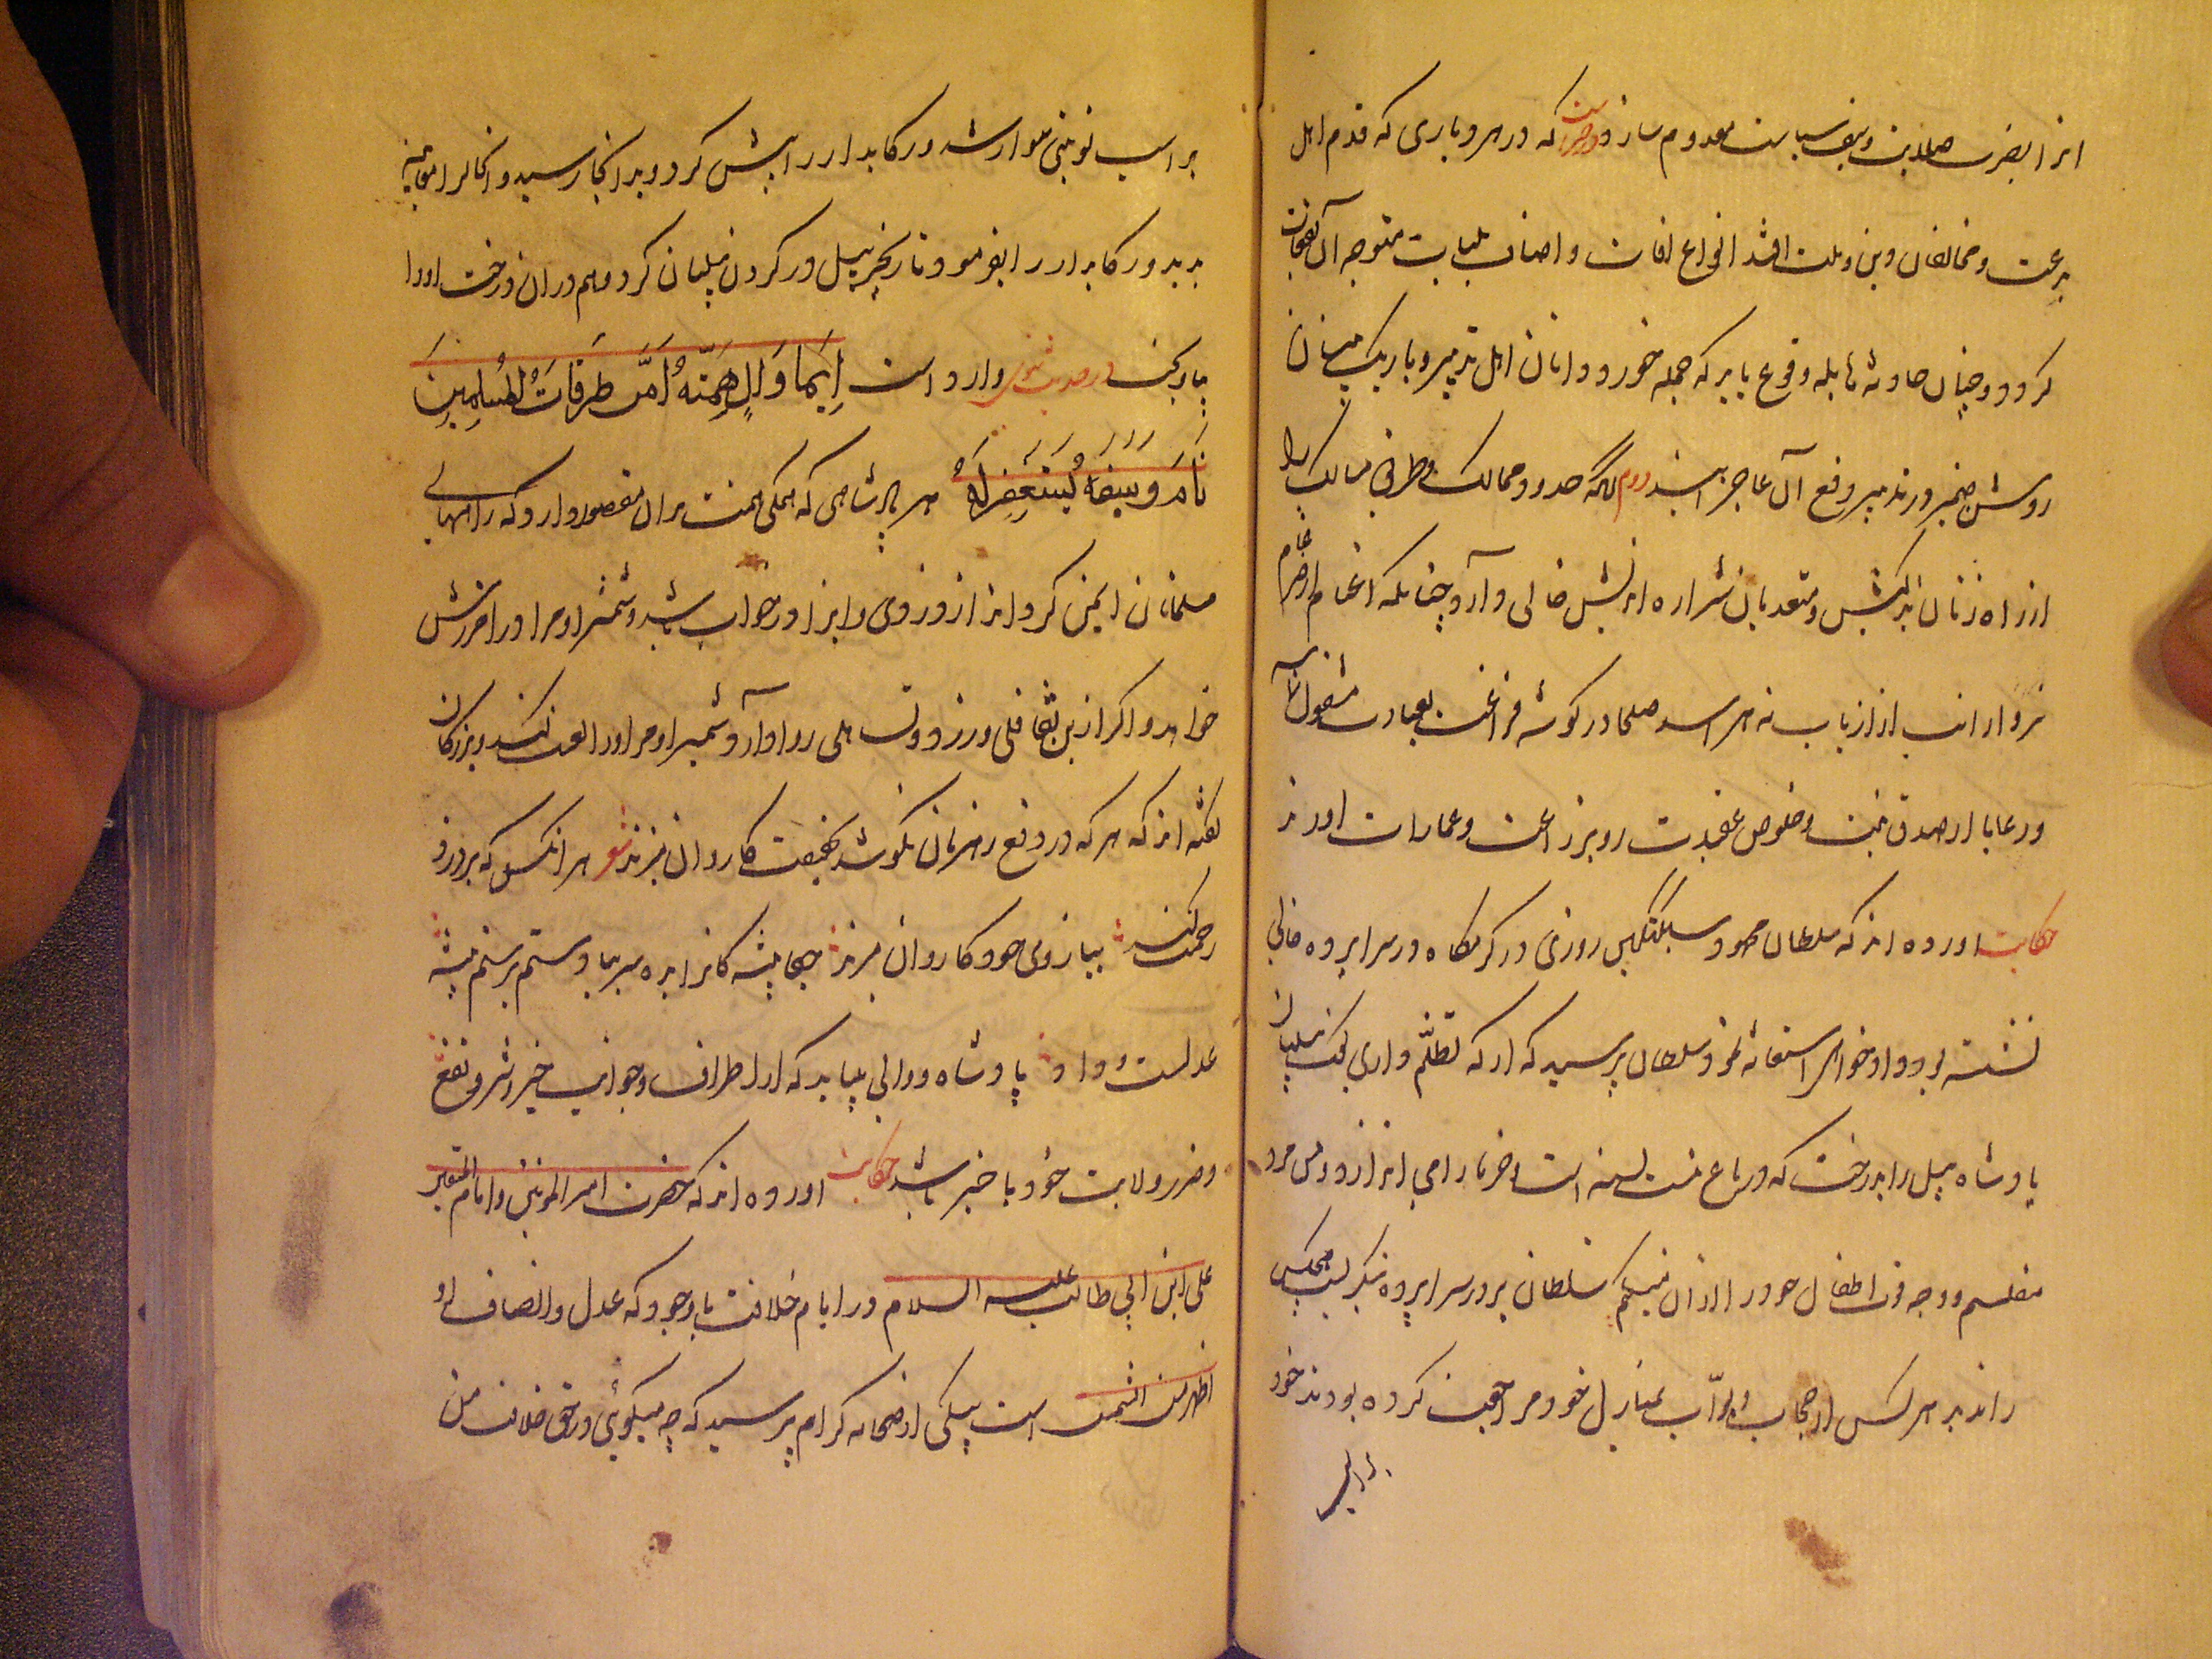 انرا بضرب صلابت و سیف سیاست معدوم سازد که در هر دیاری که قدم اهل
بدعت و مخالفان دین و ملت افتد انواع افات و اصناف بلیات متوجه آن
کردد و چنان حادثه هایله وقوع یابد که جمله خورده دانان اهل تدبیر و باریک بینان
روشن ضمیر در تدبیر دفع آن عاجز آیند دوم آنکه حدود ممالک و طرق مسالک را
از راه زنان و متعدیان شراره اندیش خالی دارد چنانکه
از ارباب نه هراسد صلحا در کوشه فراغت بعبادت مشغول
و رعایا از صدق نیت و خلوص عقیدت رو بزراعت و عمارات اورند
حکایت اورده اند که سلطان محمود سبکتکین روزی در کرمکاه در سراپرده خالی
نشسته بود دادخواهی استغاثه نمود سلطان پرسید که از که تظلم داری گفت از پیلبان
پادشاه پیل را بدرخت که در باغ منست بسته است و خرما را می اندازد و من مرد
مفلسم و وجه قوت اطفال خود از آن میکنم سلطان بدر سراپرده
راند بد هر کس از حجاب و بواب بمنازل خود مراجعت کرده بودند خود
بر اسپ نوبتی سوار شد و رکابدار را پیش کرد و بدانجا رسید و انحال را معاینه
بدید و رکابدار را بفرمود تا زنجیر پیل در کردن پیلبان کرد و هم در ان درخت او را
بیاویخت در حدیث نبوی وارد است اِیّما وَالٍ هِمَّتهُ اَمَّن طَرَقاتُ المُسلِمینَ
نامَ وَ سَیفَهُ یَستَغفِرلَهُ هر پادشاهی که همکی همت بر ان مقصود دارد که راههای
مسلمانان ایمن کرداند از دزدی و ایذا و در خواب باشد و شمشیر او مر او را امرزش
خواهد و اگر ازین تغافلی ورزد و تساهلی روا دارد شمشیر او مر او را لعنت کند و بزرگان
گفته اند که هر که در دفع رهزنان نکوشد بحقیقت کاروان میزند شعر هر انکس که بر دزد
رحمت کند ببازوی خود کاروان میزند جفا پیشه کانرا بده سر بباد ستم بر ستم پیشه
عدلست و داد پادشاه و والی میباید که از اطراف و جوانب خیر و شر و نفع
و ضرر ولایت خود با خبر باشد حکایت اورده اند که حضرت امیر المومنین و امام المتقین
علی ابن ابی طالب علیه السلام در ایام خلافت با وجود که عدل و انصاف او
اظهر من الشمس است یکی از صحابه کرام پرسید که چه میکوئی در حق خلافت من